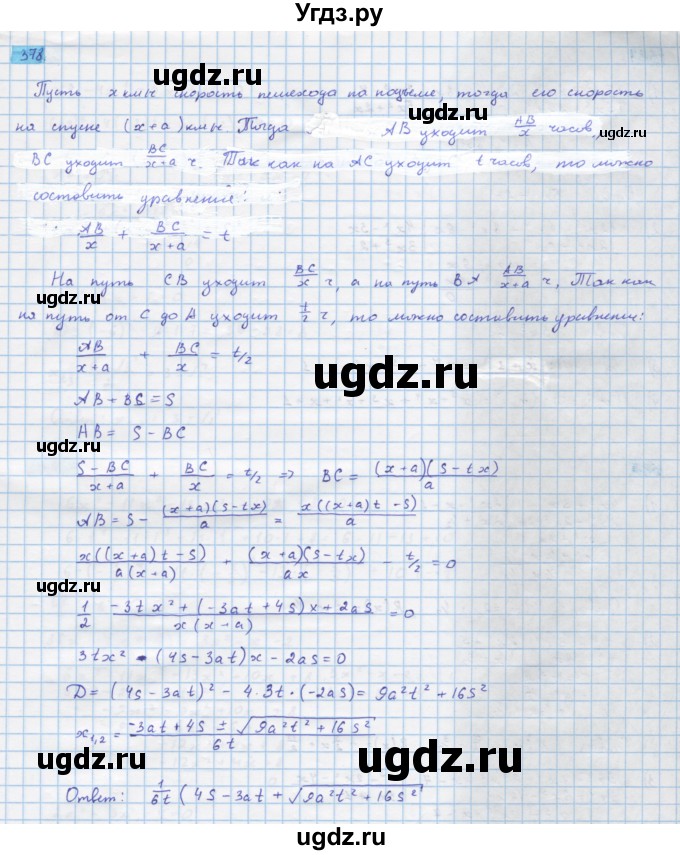 Угдз.ру
378
ugdz.ru
ugdz.ru
Пусть x км/ч скорость пешехода на подъеме, тогда его скорость
на спуске (x+a) км/ч Тогда AB уходит AB/x часов,
ugdz.ru
ugdz.ru
BC уходит BC/(x+a) ч. Так как на AC уходит t часов, то можно
составить уравнение:
AB/x + BC/(x+a) = t
ugdz.ru
На путь CB уходит BC/x ч, а на путь BA AB/(x+a) ч. Так как
на путь от C до A уходит t/2 ч, то можно составить уравнение:
AB/(x+a) + BC/x = t/2
ugdz.ru
AB + BC = S
AB = S - BC
(S-BC)/(x+a) + BC/x = t/2 => BC = (x+a)(S-tx)/a
ugdz.ru
AB = S - (x+a)(S-tx)/a = x((x+a)t-S)/a
x((x+a)t-S)/a(x+a) + (x+a)(S-tx)/ax - t/2 = 0
ugdz.ru
1/2 (-3tx² + (-3at+4S)x + 2aS)/x(x-a) = 0
ugdz.ru
3tx² - (4S-3at)x - 2aS = 0
D = (4S-3at)² - 4·3t·(-2aS) = 9a²t² + 16S²
x₁,₂ = (-3at+4S ± √(9a²t²+16S²))/6t
ugdz.ru
Ответ: 1/6t (4S-3at+√(9a²t²+16S²)
ugdz.ru